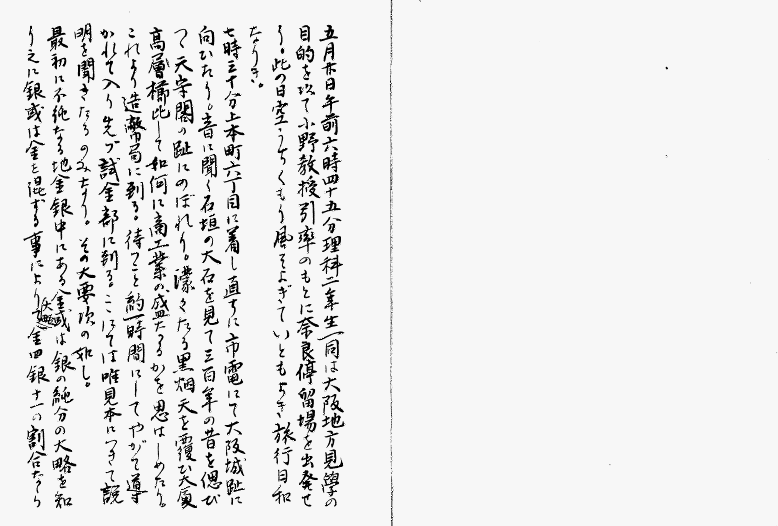 五月廿日午前六時四十五分理科二年生一同は大阪地方見學の
目的を以て小野教授引率のもとに奈良停留場を出発せ
り。此の日空うちくもり風そよぎていともよき旅行日和
なりき。
七時三十分上本町六丁目に着し直ちに市電にて大阪城趾に
向ひたり。音に聞く石垣の大石を見て三百年の昔を偲び
つゝ天守閣の趾にのぼれり。濛々たる黒烟天を覆ひ大廈
高層櫛比して如何に商工業の盛なるかを思はしめたり。
これより造幣局に到る。待つこと約一時間にしてやがて導
かれて入り先づ試金部に到る。こゝにては唯見本につきて説
明を聞きたるのみなり。その大要次の如し。
最初に不純なる地金銀中にある金或は銀の純分の大略を知
り之に銀或は金を混ずる事により金四銀十一の割合なら